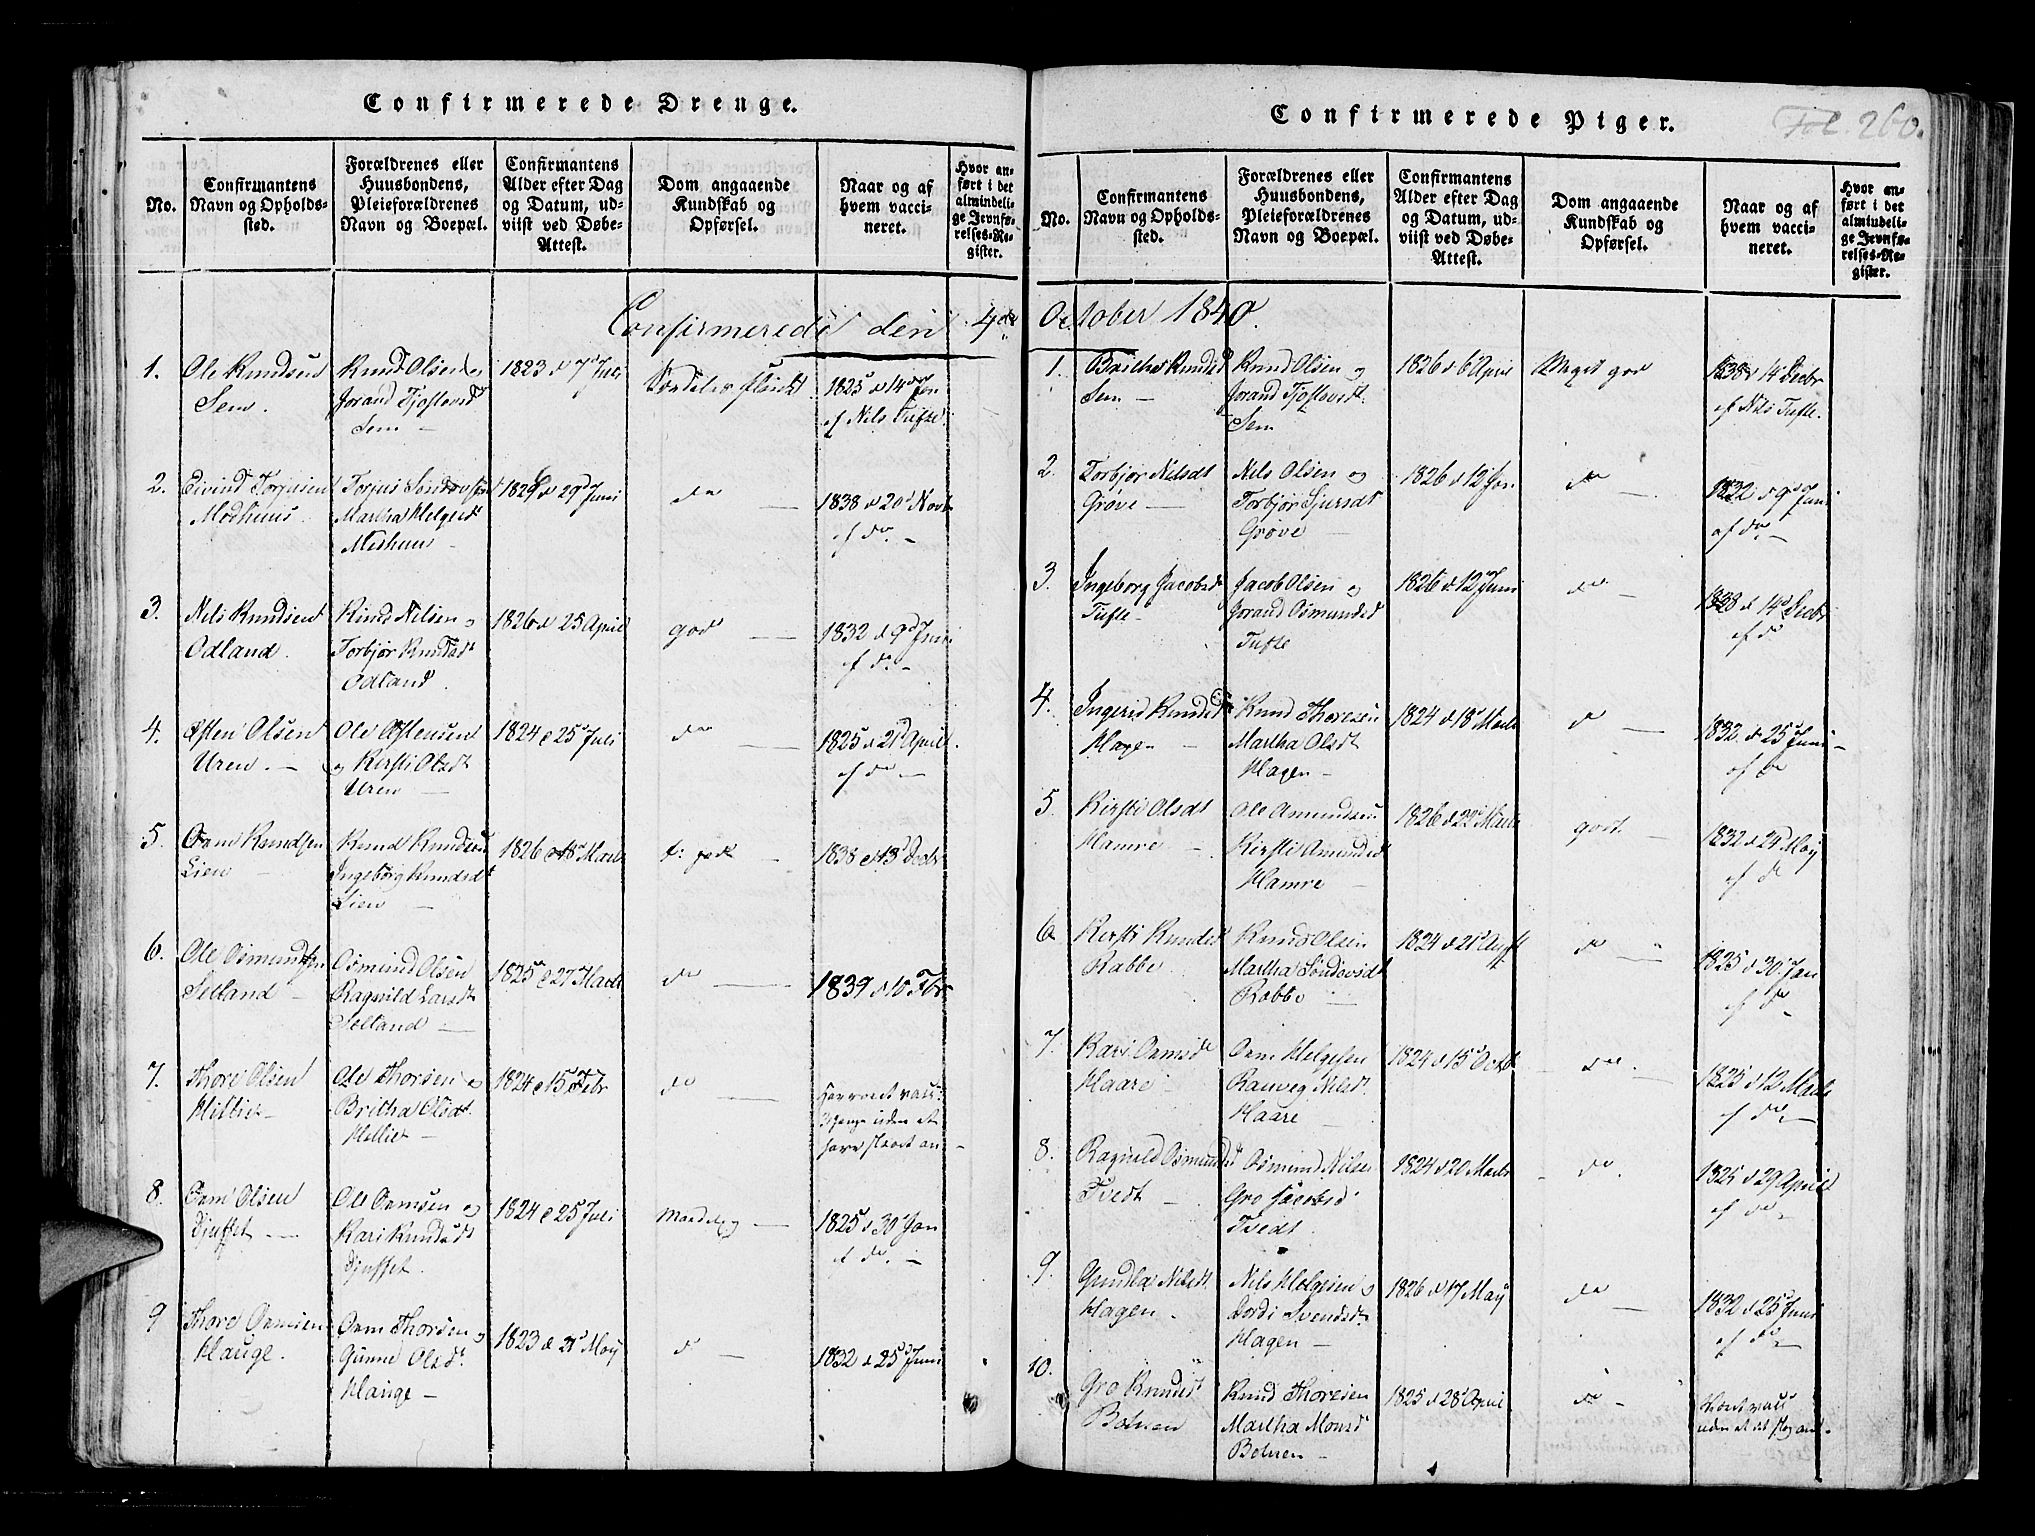 Confirmerede Drenge.
No.
Confirmantens
Navn og Opholds-
sted.
Forældrenes eller
Huusbondens,
Pleieforældrenes
Navn og Boepæl.
Confirmantens
Alder efter Dag
og Datum, ud-
viist ved Døbe-
Attest.
Dom angaaende
Kundskab og
Opførsel.
Naar og af
hvem vacci-
neret.
Hvor an-
ført i det
almindeli-
ge Jevnfø-
relses-Re-
gister.
Confirmerede den 4de
1.
Ole Knudsen
Sem.
Knud Olsen
Jorand Tjostovsd
Sem
1823 d 7 Juli
1825 d 14 Jan
af Nils Tufte
2.
Eivind Torjusen
Medhuus.
Torjus
Martha Helgesd
Medhuus
d 29 Juni
do
1838 d 20 Novbr
af do
3.
Nels Knudsen
Odland.
Knud Nilsen og
Torbjør Knudsd
Odland.
1826 d 25 April
god
1832 d 9 Juni
af do
4.
Østen Olsen
Uren.
Ole Østensen
og Kirsti Olsdt
Uren
1824 d 25 Juli
do
1825 d 21 April
af do
5.
Orm Knudsen
Lien
Knud Knudsen
Ingeborg Knudsdt
Lien
1826 d 18 Marts
1838 d 13 Decbr
6.
Ole Osmundsen
Selland
Osmund Olsen
Ragnild Larsdt
Selland
1825 d 27 Marts
do
1839 d 10 Febr
7.
Thore Olsen
Ole Thorsen og
Britha Olsdt.
1824 d 15 Febr
do
8.
Orm Olsen
Djuffet
Ole Ormsen og
Kari Knudsdt
Djuffet.
1824 d 25 Juli
Maadelig
1825 d 30 Jan
af do
9
Thore Ormsen
Hauge.
Orm Thorsen og
Gunne Olsdt
Hauge
1823 d 21 May
do
1832 d 25 Juni
Confirmerede Piger.
Fol. 260.
No.
Confirmantens
Navn og Opholds-
sted.
Forældrenes eller
Huusbondens,
Pleieforældrenes
Navn og Boepæl.
Confirmantens
Alder efter Dag
og Datum, ud-
viist ved Døbe-
Attest.
Dom angaaende
Kundskab og
Opførsel.
Naar og af
hvem vacci-
neret.
Hvor an-
ført i det
almindeli-
ge Jevnfø-
relses-Re-
gister.
October 1840.
1.
Britha Knudsd
Sem
Knud Olsen og
Jorand Tjostovsdt.
Sem
1826 d 6 April
Meget god
1838 d 14 Decbr
af Nils Tufte.
2.
Torbjør Nilsdt
Grøve
Nels Olsen og
Torbjør Sjursdt
Grøve
1826 d 12 Jan
do
1832 d 9 Juni
af do
3.
Ingeborg Jacobsd
Tufte
Jacob Olsen og
Jorand Osmundsd
Tufte
1826 d 12 Juni
do
1838 d 14 Decbr
af do
4.
Ingerid Knudsd
Hagen
Knud Thoresen
Martha Olsdt
Hagen
1824 d 18 Marts
do
1832 d 25 Juni
af do
5
Kirsti Olsdt
Hamre
Ole Amundsen
Kirsti Amundsd
Hamre
1826 d 22 Marts
godt
1832 d 24 May
af do
6
Kirsti Knudsd
Rabbe
Knud Olsen
Martha Sondovsdt
Rabbe
1824 d 21 Augt
do
1825 d 30 Jan
af do
7.
Kari Ormsdt
Haare
Orm Helgesen
Ranveg Nilsdt.
Haare
1824 d 15 Octbr
do.
1825 d 12 Marts
af do
8.
Ragnild Osmundsd
Tvedt
Osmund Nilsen
Gro Jacobsd
Tvedt.
1824 d 20 Marts
do.
1825 d 29 April
af do
9.
Gundla Nilsdt.
Hagen.
Nils Helgesen og
Jordi Svendsdt
Hagen
1826 d 17 May
do
1832 d 25 Juni
af do
10.
Gro Knudsd
Bolven
Knud Thoresen
Martha Monsd
Bolven
1825 d 28 April
do